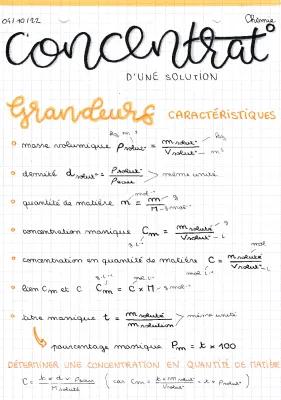 04/10/22
Chimie
Concentrat°
D'UNE SOLUTION
Grandeurs CARACTÉRISTIQUES
kg.m⁻³
masse volumique ρsolut° = m solut° / V solut° kg m³
densité d solut° = ρ solut° / ρ eau > même unité
quantité de matière n = m / M mol g g.mol⁻¹
concentration massique Cm = m soluté / V solut° g L
g.L⁻¹
concentration en quantité de matière C = n soluté / V solut° mol L
mol.L⁻¹
lien Cm et C Cm = C × M g.mol⁻¹
g.L⁻¹ mol.L⁻¹
titre massique t = m soluté / m solution > même unité
pourcentage massique Pm = t × 100
DÉTERMINER UNE CONCENTRATION EN QUANTITÉ DE MATIÈRE
C = t × d × ρ eau / M soluté (car Cm = t × m solut° / V solut° = t × ρ solut°)